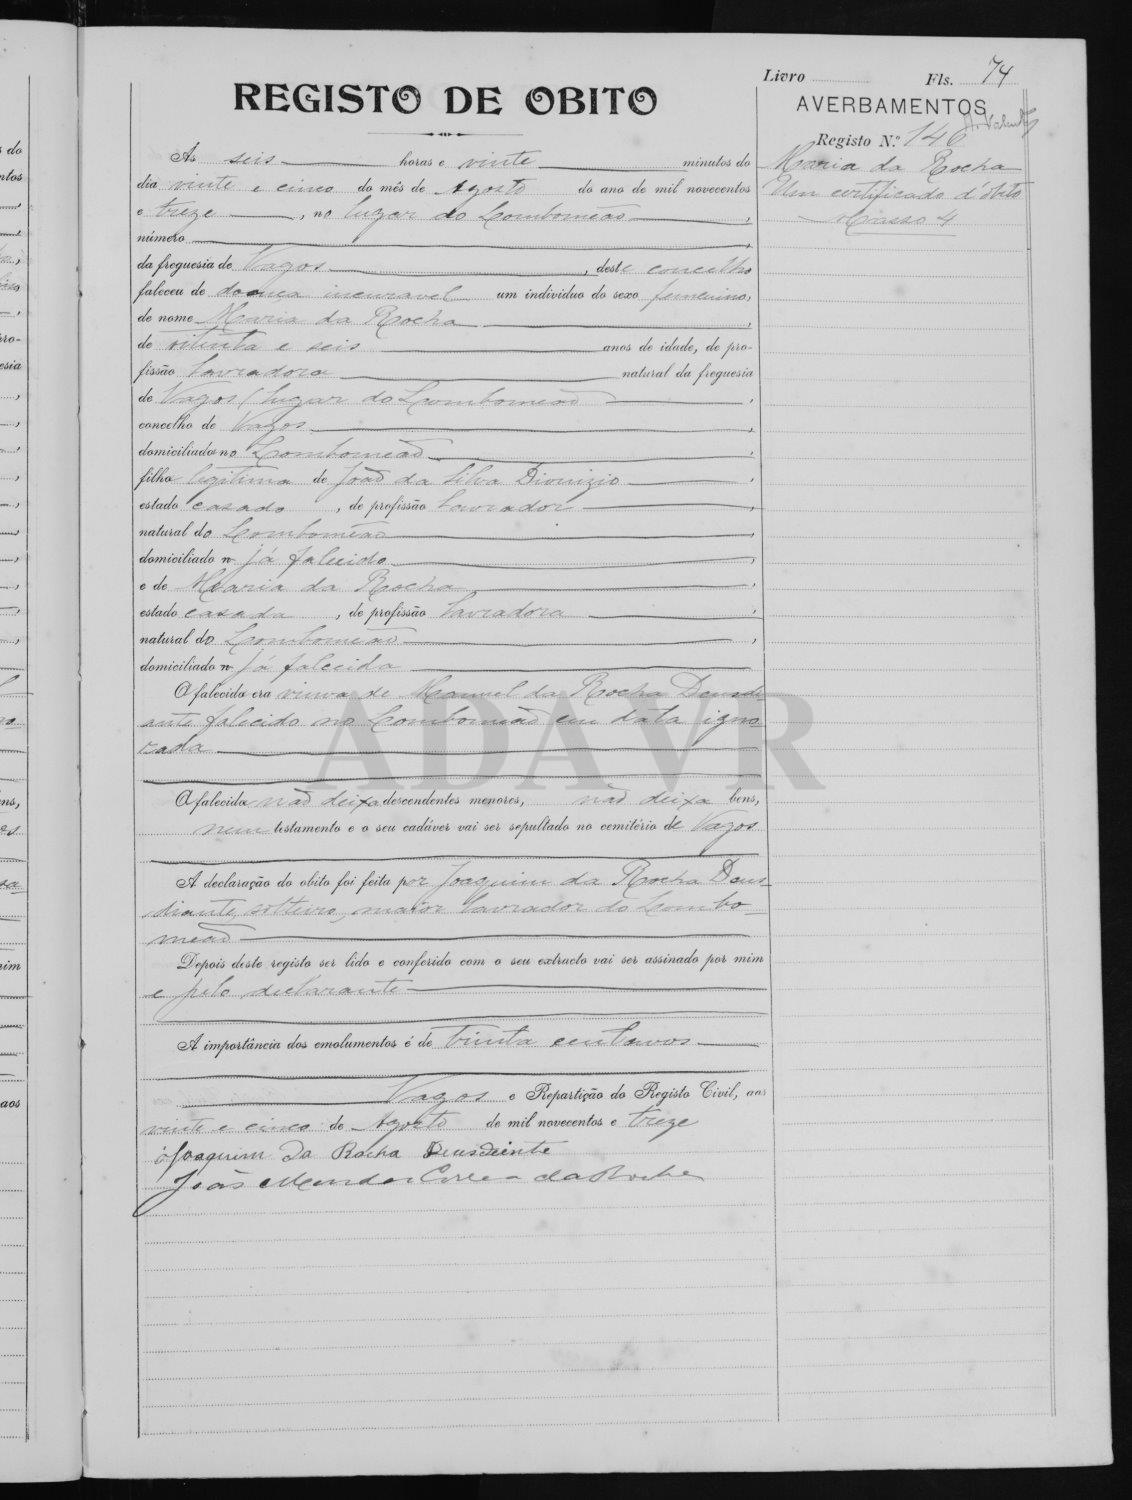 Livro Fls. 74
REGISTO DE OBITO
AVERBAMENTOS
Registo N.º 146
Maria da Rocha
Um certificado d'óbito
Masso 4
As seis horas e vinte minutos do
dia vinte e cinco do mês de Agosto do ano de mil novecentos
e treze, no lugar do Lombomeão,
número
da freguesia de Vagos, deste concelho
faleceu de doença incuravel um individuo do sexo femenino,
de nome Maria da Rocha,
de oitenta e seis anos de idade, de pro-
fissão lavradora natural da freguesia
de Vagos (lugar do Lombomeão,
concelho de Vagos,
domiciliada no Lombomeão,
filha legitima de João da Silva Dionizio,
estado casado, de profissão lavrador,
natural do Lombomeão,
domiciliado n já falecido,
e de Maria da Rocha,
estado casada, de profissão lavradora,
natural do Lombomeão,
domiciliado n já falecida
A falecida era viuva de Manuel da Rocha Deusdi
ante falecido no Lombomeão em data igno
rada
A falecida não deixa descendentes menores, não deixa bens,
nem testamento e o seu cadáver vai ser sepultado no cemitério de Vagos
A declaração do obito foi feita por Joaquim da Rocha Deus-
diante, solteiro, maior lavrador do Lombo-
meão
Depois deste registo ser lido e conferido com o seu extracto vai ser assinado por mim
e pelo declarante
A importância dos emolumentos é de trinta centavos
Vagos e Repartição do Registo Civil, aos
vinte e cinco de Agosto de mil novecentos e treze
Joaquim da Rocha Deusdiente
João Mendes Correa da Rocha
ADAVR